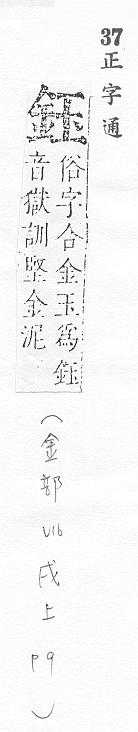 37正字通
鈺
俗字合金玉為鈺
音獄訓堅金泥
(金部 V16 戌上 P9)